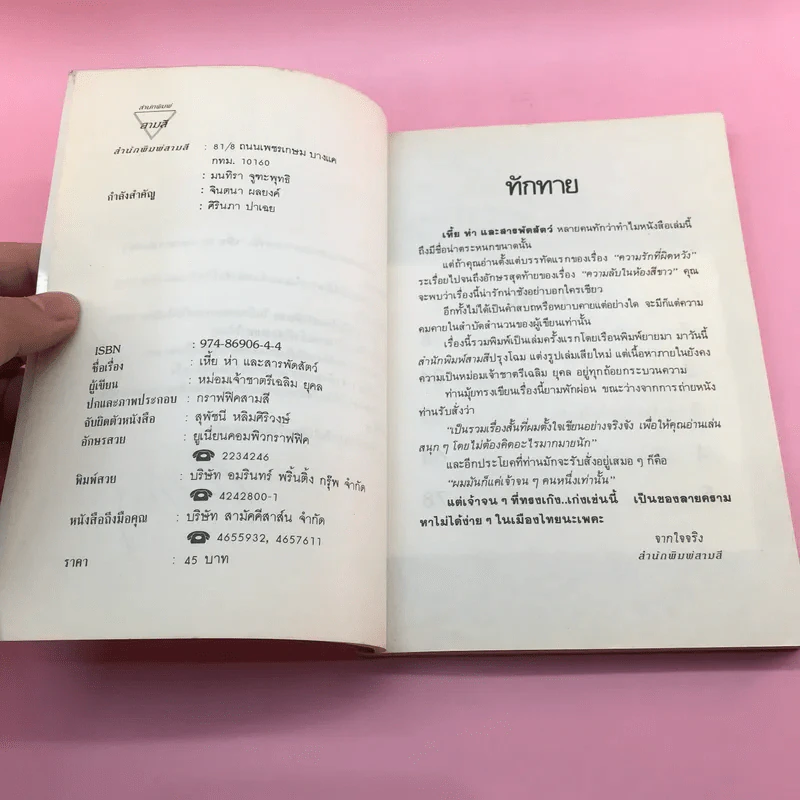 สำนักพิมพ์
สามสี
สำนักพิมพ์สามสี : 81/8 ถนนเพชรเกษม บางแค
กทม. 10160
กำลังสำคัญ : มนทิรา จูฑะพุทธิ
: จินตนา ผลยงค์
: ศิรินภา ปาเฉย
ISBN : 974-86906-4-4
ชื่อเรื่อง : เหี้ย ห่า และสารพัดสัตว์
ผู้เขียน : หม่อมเจ้าชาตรีเฉลิม ยุคล
ปกและภาพประกอบ : กราฟฟิคสามสี
จับยิดตัวหนังสือ : สุพัชนี หลิมศิริวงษ์
อักษรสวย : ยูเนี่ยนคอมพิวกราฟฟิค
☎ 2234246
พิมพ์สวย : บริษัท อมรินทร์ พริ้นติ้ง กรุ๊พ จำกัด
☎ 4242800-1
หนังสือถึงมือคุณ : บริษัท สามัคคีสาส์น จำกัด
☎ 4655932, 4657611
ราคา : 45 บาท
ทักทาย
เหี้ย ห่า และสารพัดสัตว์ หลายคนทักว่าทำไมหนังสือเล่มนี้
ถึงมีชื่อน่าตระหนกขนาดนั้น
แต่ถ้าคุณอ่านตั้งแต่บรรทัดแรกของเรื่อง “ความรักที่ผิดหวัง”
ระเรื่อยไปจนถึงอักษรสุดท้ายของเรื่อง “ความลับในห้องสีขาว” คุณ
จะพบว่าเรื่องนี้น่ารักน่าชังอย่าบอกใครเชียว
อีกทั้งไม่ได้เป็นคำสบถหรือหยาบคายแต่อย่างใด จะมีก็แต่ความ
คมคายในสำบัดสำนวนของผู้เขียนเท่านั้น
เรื่องนี้รวมพิมพ์เป็นเล่มครั้งแรกโดยเรือนพิมพ์ยายมา มาวันนี้
สำนักพิมพ์สามสีปรุงโฉม แต่งรูปเล่มเสียใหม่ แต่เนื้อหาภายในยังคง
ความเป็นหม่อมเจ้าชาตรีเฉลิม ยุคล อยู่ทุกถ้อยกระบวนความ
ท่านมุ้ยทรงเขียนเรื่องนี้ยามพักผ่อน ขณะว่างจากการถ่ายหนัง
ท่านรับสั่งว่า
“เป็นรวมเรื่องสั้นที่ผมตั้งใจเขียนอย่างจริงจัง เพื่อให้คุณอ่านเล่น
สนุก ๆ โดยไม่ต้องคิดอะไรมากมายนัก”
และอีกประโยคที่ท่านมักจะรับสั่งอยู่เสมอ ๆ ก็คือ
“ผมมันก็แค่เจ้าจน ๆ คนหนึ่งเท่านั้น”
แต่เจ้าจน ๆ ที่ทรงเก้ง..เก่งเช่นนี้ เป็นของลายคราม
หาไม่ได้ง่าย ๆ ในเมืองไทยนะเพคะ
จากใจจริง
สำนักพิมพ์สามสี